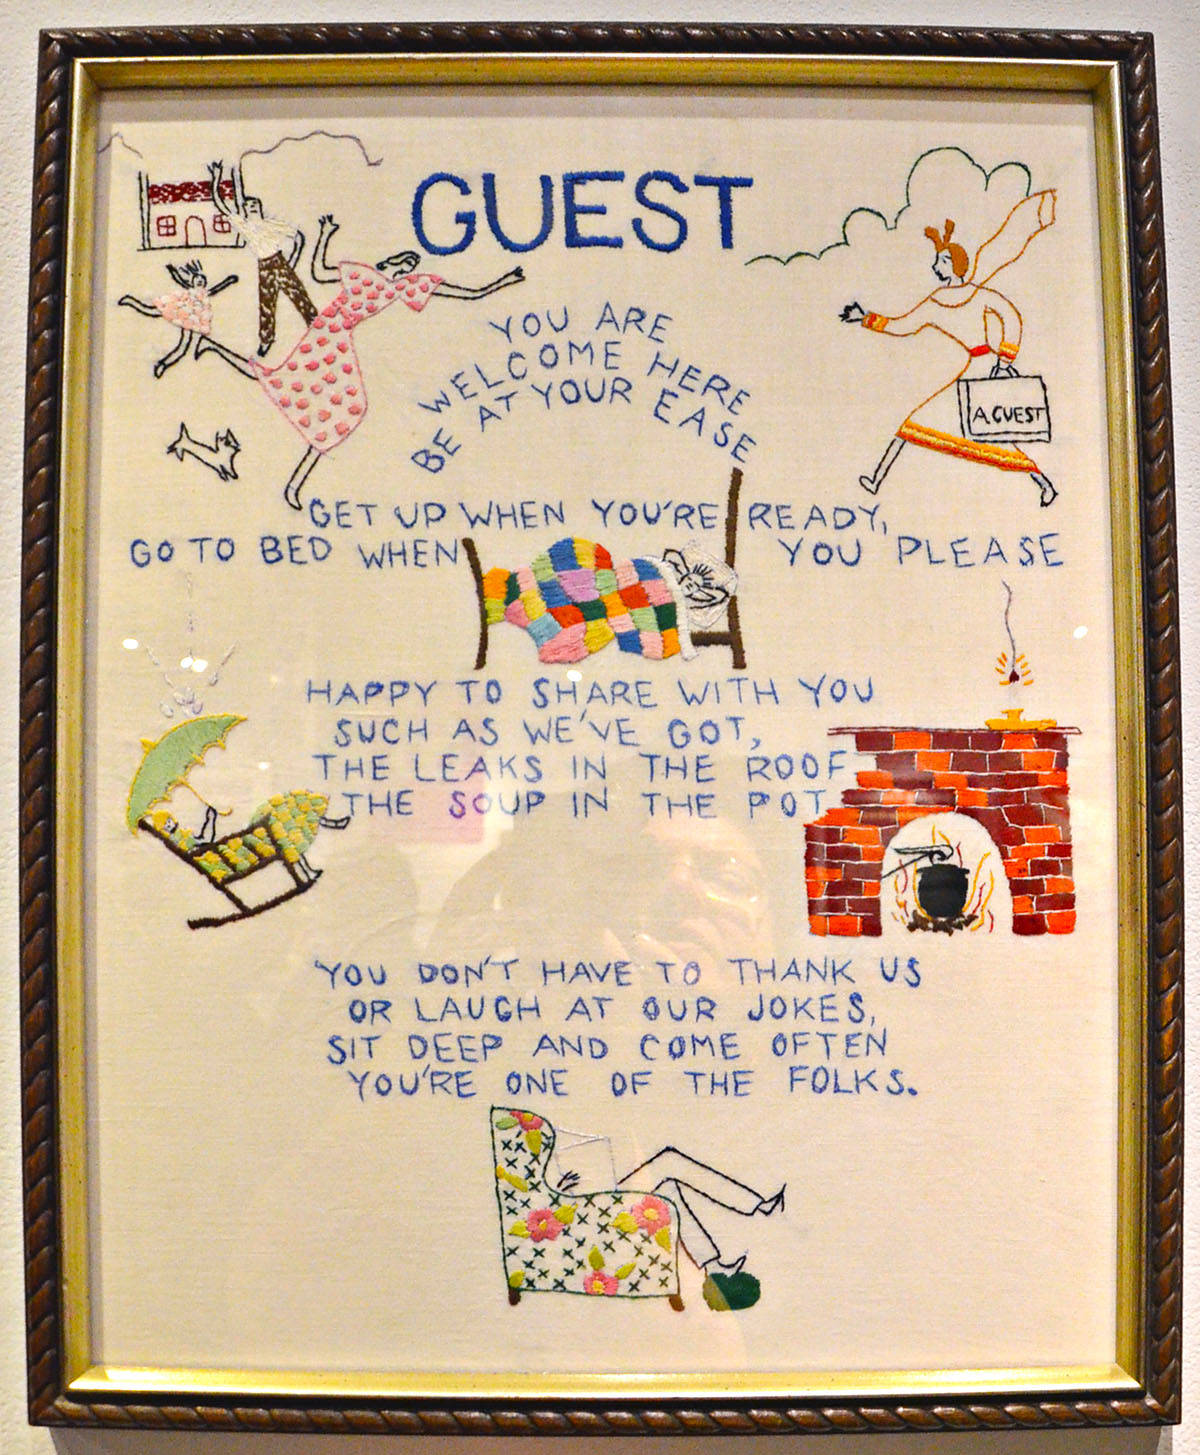 GUEST
YOU ARE
WELCOME HERE
BE AT YOUR EASE
A GUEST
GET UP WHEN YOU'RE READY,
GO TO BED WHEN YOU PLEASE
HAPPY TO SHARE WITH YOU
SUCH AS WE'VE GOT,
THE LEAKS IN THE ROOF
THE SOUP IN THE POT
YOU DON'T HAVE TO THANK US
OR LAUGH AT OUR JOKES,
SIT DEEP AND COME OFTEN
YOU'RE ONE OF THE FOLKS.